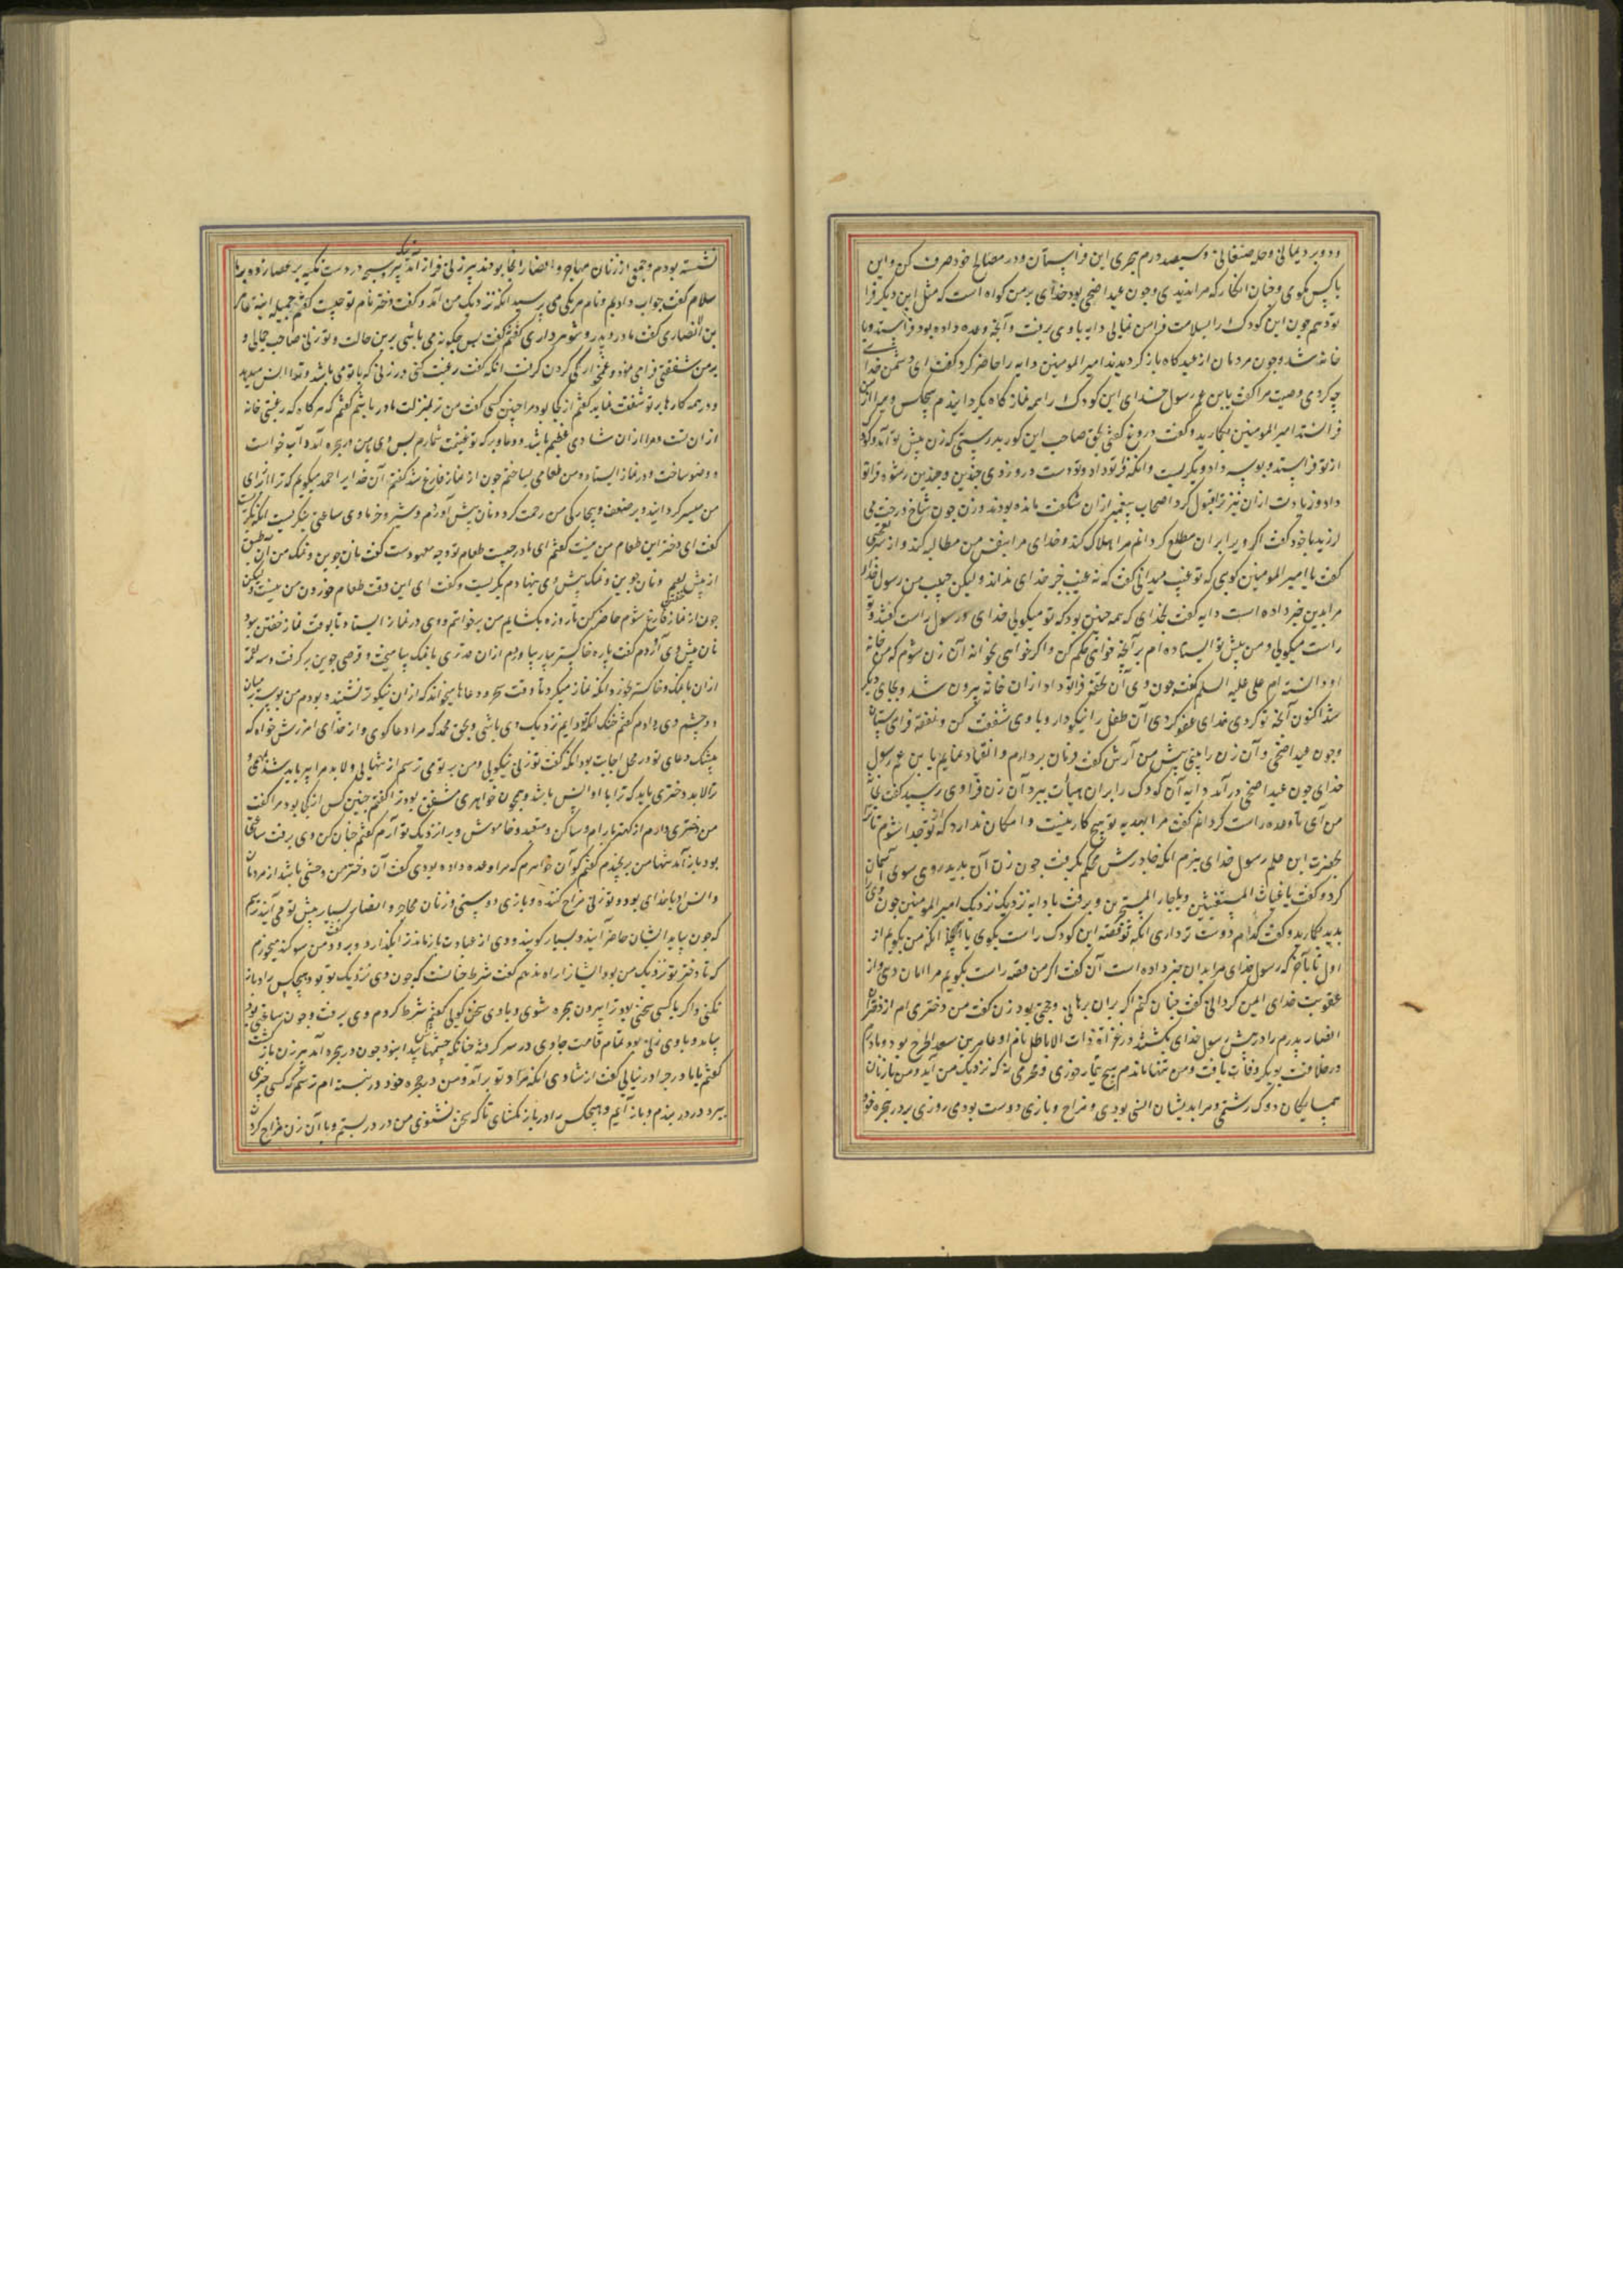 ودو برد یمانی وحله صنعانی وسیصد درم هجری این فراستان ودر مصالح خود صرف کن واین
با کس مکوی وچنان انکار که مرا ندیدی وچون عید اضحی بود خدای بر من کواه است که مثل این دیکر فرا
تو دهم چون این کودک را بسلامت فرا من نمایی دایه با وی برفت وآنچه وعده داده بود فراستد وبا
خانه شد وچون مردمان از عیدکاه باز کردیدند امیر المومنین دایه را حاضر کرد کفت ای دشمن خدا
چه کردی وصیت مرا کفت یا بن عم رسول خدای این کودک را همه نماز کاه بکردانیدم هیچکس ویرا از من
فرا نستد امیر المومنین کفت دروغ کفتی بحق صاحب این کور بدرستی که زن پیش تو آمد وکودک
از تو فراستد وبوسه داد وبکریست وانکه فرا تو داد وتو دست درو زدی چنین وچنین رشوه فرا تو
داد وزیادت ازان نیز ترا قبول کرد اصحاب پیغمبر ازان شکفت مانده بودند وزن چون شاخ درخت می
لرزید با خود کفت اکر ویرا بران مطلع کردانم مرا هلاک کند وخدای مرا بنفس من مطالبه کند
کفت یا امیر المومنین کویی که تو غیب میدانی کفت که نه غیب جز خدای نداند ولیکن حبیب من رسول خدا
مرا بدین خبر داده است دایه کفت بخدای که همه چنین بود که تو میکویی خدای ورسول راست کفتند وتو
راست میکویی ومن پیش تو ایستاده ام بر آنچه خواهی حکم کن واکر خواهی بخوانه آن زن شوم که من خانه
او دانسته ام علی علیه السلم کفت چون وی آن تحفه فرا تو داد ازان خانه بیرون شد وبجای دیکر
شد اکنون آنچه تو کردی خدای عفو کردی آن طفل را نیکودار وبا وی شفقت کن ونفقه فرا می ستان
وچون عید اضحی وآن زن را بینی پیش من آرش کفت فرمان بردارم وانقیاد نمایم یا بن عم رسول
خدای چون عید اضحی درآمد دایه آن کودک را بران هیأت ببرد آن زن فرا وی رسید کفت بخانه
من آی تا وعده راست کردانم کفت مرا بهدیه تو هیچ کار نیست وامکان ندارد که از تو جدا شوم تا ترا
بحضرت ابن عم رسول خدای برم انکه چادرش محکم بکرفت چون زن آن بدید روی سوی آسمان
کرد وکفت یا غیاث المستغیثین ویا جار المستجیرین وبرفت با دایه نزدیک نزدیک امیر المومنین چون ویرا
بدید وکفت کدام دوست تر داری انکه تو قصه این کودک راست بکوی یا انکه من بکویم از
اول تا بآخر که رسول خدای مرا بدان خبر داده است آن کفت اکر من قصه راست بکویم مرا امان دهی واز
عقوبت خدای ایمن کردانی کفت چنان کنم اکر بران برهانی وحجتی بود زن کفت من دختری ام از دختران
انصار پدرم را در پیش رسول خدای بکشتند در غزاة ذات الاباطل نام او عامر بن سعد الخزرج بود ومادرم
در خلافت بوبکر وفات یافت ومن تنها ماندم بی هیچ تیمارخوری ومحرمی نه که نزدیک من آید ومن با زنان
همسایکان دوک رشتمی ومرا بدیشان انس بودی ومزاح وبازی دوست بودمی روزی بر در حجره خود
نشسته بودم وجمعی از زنان مهاجر وانصار آنجا بودند پیر زنی فراز آمد تسبیح در دست تکیه بر عصا زده بر ما
سلام کفت جواب دادیم ونام هر یکی می پرسید انکه نزدیک من آمد وکفت دختر نام تو چیست کفتم جمیله ابنة عامر
بن الانصاری کفت مادر وپدر وشوهر داری کفتم کفت پس چکونه می باشی برین حالت وتو زنی صاحب جمالی و
بر من شفقتی فرا می نمود وغمخوارکی کردن کرفت انکه کفت رغبت کنی در زنی که با تو می باشد وترا انس میدهد
ودر همه کارها بر تو شفقت نماید کفتم از کجا بود مرا چنین کسی کفت من ترا بمنزلت مادر باشم کفتم که هر کاه که رغبتی خانه
ازان تست ومرا ازان شادی عظیم باشد پس وی با من در حجره آمد وآب خواست
ووضو ساخت ودر نماز ایستاد ومن طعامی بساختم چون از نماز فارغ شد کفتم آن خدایرا حمد میکویم که ترا از برای
من میسر کردانید وبر ضعف وبیچارکی من رحمت کرد ونان پیش آوردم وشیر وخرما وی ساعتی بنکریست انکه بکریست
کفت ای دختر این طعام من نیست کفتم ای مادر چیست طعام تو وچه معهودست کفت نان جوین ونمک من آن طبق
از پیش بر کرفتم ونان جوین ونمک پیش وی بنهادم بکریست وکفت ای این وقت طعام خوردن من نیست ولیکن
چون از نماز خفتن فارغ شوم حاضر کن تا روزه بکشایم من برخواستم ووی در نماز ایستاد تا بوقت نماز خفتن ببود
نان پیش وی آوردم کفت پاره خاکستر بیار بیاوردم ازان قدری با نمک بیامیخت وقرصی جوین بر کرفت وسه لقمه
ازان با نمک وخاکستر بخورد انکه نماز میکرد تا وقت سحر ودعاها میخواند که ازان نیکوتر نشنیده بودم من بوسه بر میان
دو چشم وی دادم کفتم خنک انکه تو دایم نزدیک وی باشی وبحق محمد که مرا دعا کوی واز خدای امرزش خواه که
بیشک دعای تو در محل اجابت بود انکه کفت تو زنی نیکویی ومن بر تو می ترسم از تنهایی ولا بد مرا بیرون باید شد
ترا لا بد دختری باید که ترا با او انس باشد وهمچون خواهری مشفق بود ترا کفتم چنین کس از کجا بود مرا کفت
من دختری دارم از تو کهتر بارام وساکن ومتعبد وخاموش ویرا نزدیک تو آرم کفتم چنان کن وی برفت ساعتی
بود باز آمد تنها من بخندم کفتم کو آن خواهرم که مرا وعده داده بودی کفت آن دختر من وحشی باشد از مردمان
وانس او با خدای بود وتو زنی مزاح کننده وبازی دوستی وزنان مهاجر وانصار بسیار پیش تو می آیند ترسم
که چون بیاید ایشان حاضر آیند وبسیار کویند ووی از عبادت باز ماند ترا بکذارد وبرود من سوکند میخورم
که تا دختر تو نزدیک من بود ایشانرا راه ندهم کفت شرط چنانست که چون وی نزدیک تو بود هیچکس را در باز
نکنی واکر با کسی سخنی بود ترا بیرون حجره شوی وبا وی سخن کویی کفتم شرط کردم وی برفت وچون ساعتی بود
بیامد وبا وی زنی بود تمام قامت چادری در سر کرفته چنانکه چشمهاش پیدا بود چون در حجره آمد پیر زن باز کشت
کفتم یا ماما چرا در نیایی کفت از شادی انکه مراد تو بر آمد ومن در حجره خود در نبسته ام ترسم که کسی چیزی
ببرد در بندم وباز آیم وهیچکس را در باز مکشای تا که سخن نشنوی من در در بستم وبا آن زن مزاح کردن